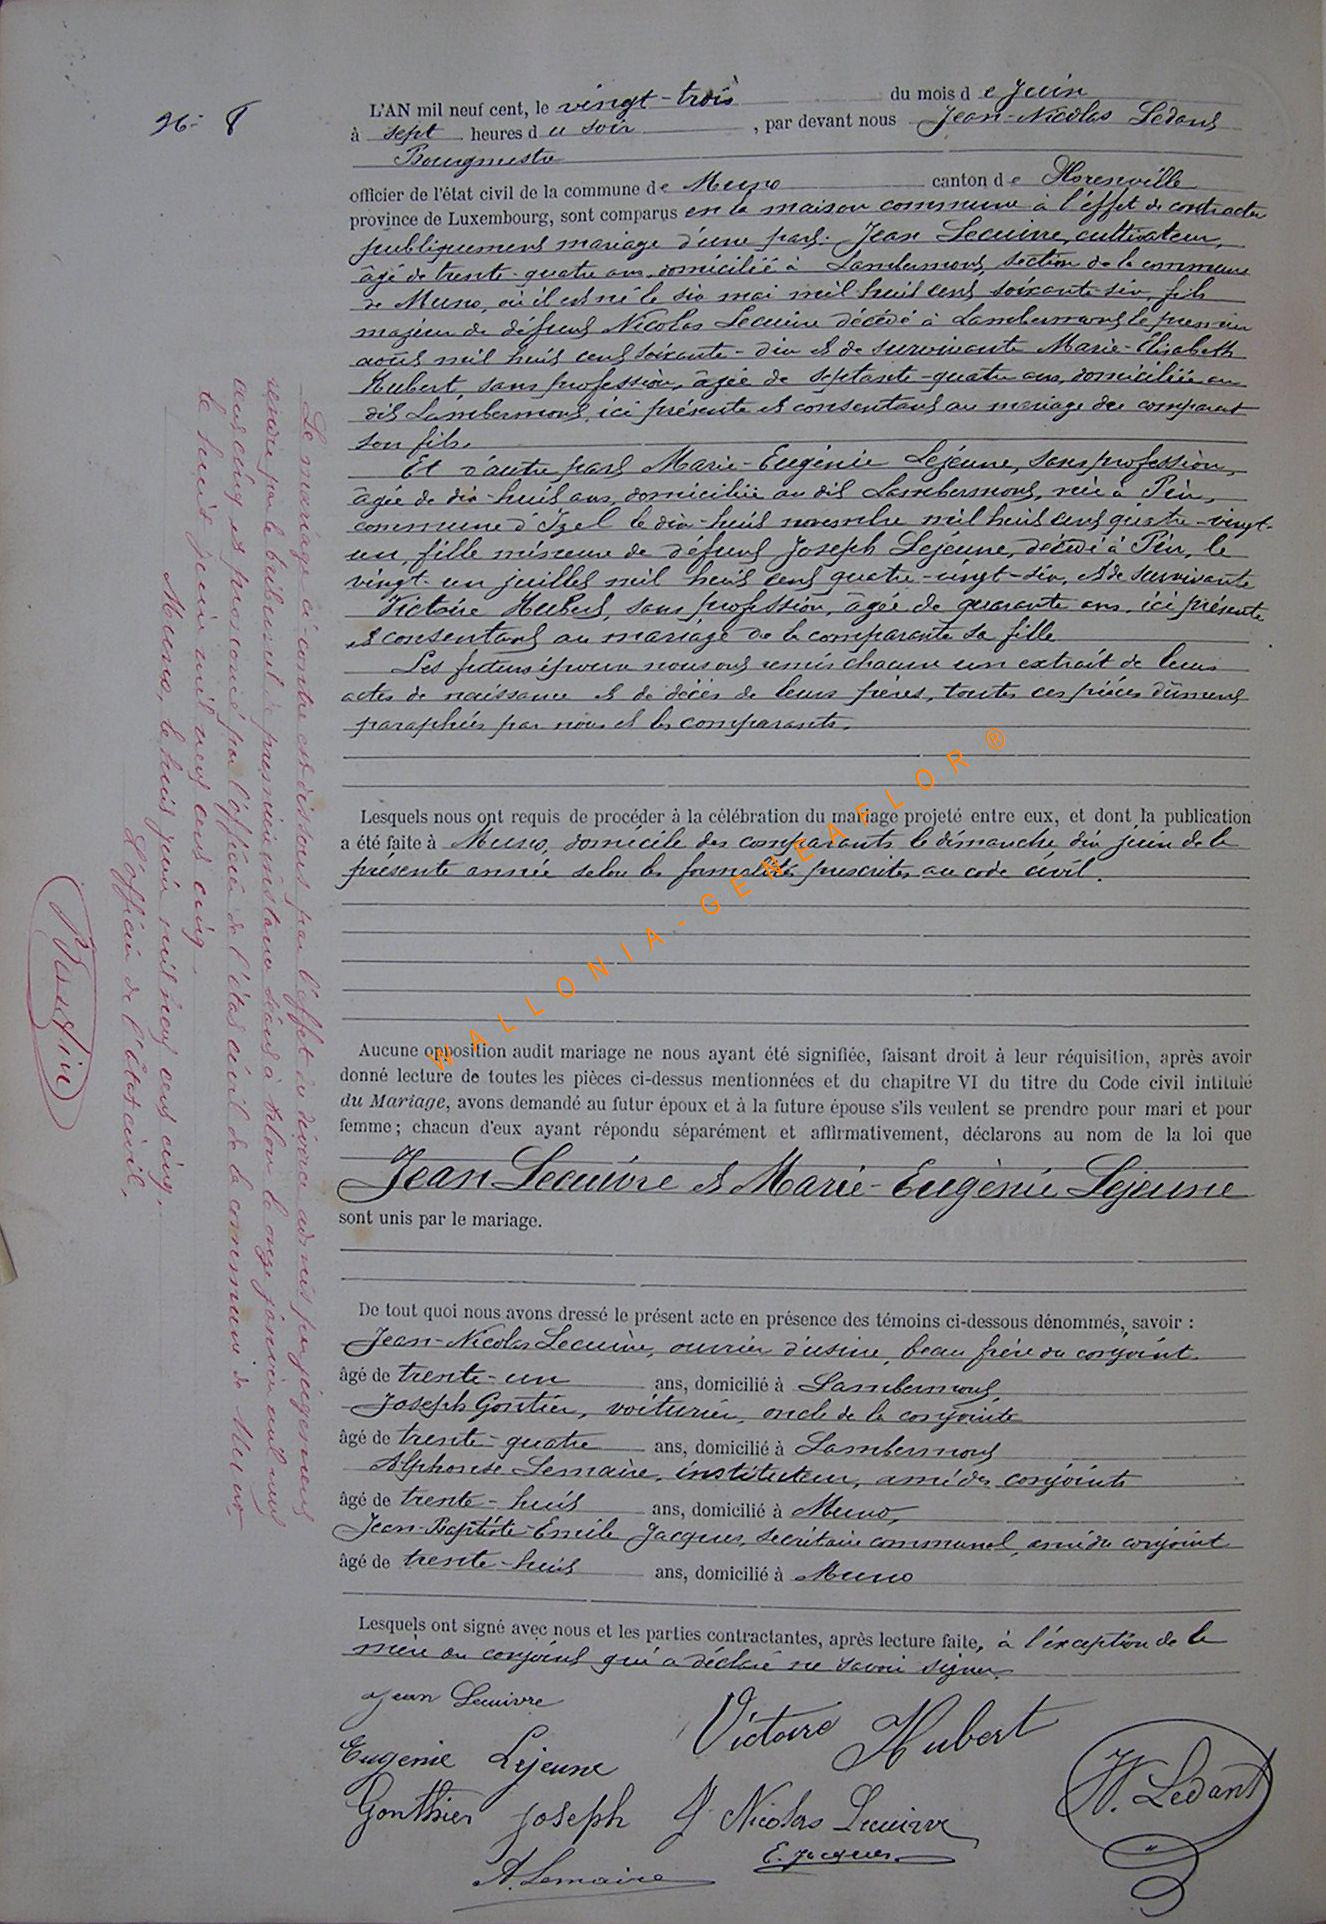 N°- 8
L'AN mil neuf cent, le vingt-trois du mois de Juin
à sept heures du soir, par devant nous Jean-Nicolas Ledant
Bourgmestre
officier de l'état civil de la commune de Muno canton de Florenville
province de Luxembourg, sont comparus en la maison commune à l'effet de contracter
publiquement mariage d'une part: Jean Lecuivre, cultivateur,
âgé de trente-quatre ans, domicilié à Lambermont, section de la commune
de Muno, où il est né le six mai mil huit cent soixante-six, fils
majeur de défunt Nicolas Lecuivre décédé à Lambermont le premier
août mil huit cent soixante-dix et de survivante Marie-Elisabeth
Hubert, sans profession, âgée de septante-quatre ans, domiciliée au
dit Lambermont, ici présente et consentant au mariage du comparant
son fils.
Et d'autre part Marie-Eugénie Lejeune, sans profession,
âgée de dix-huit ans, domiciliée au dit Lambermont, née à Pin,
commune d'Izel le dix-huit novembre mil huit cent quatre-vingt-
un, fille mineure de défunt Joseph Lejeune, décédé à Pin, le
vingt-un juillet mil huit cent quatre-vingt-six, et de survivante
Victoire Hubert, sans profession, âgée de quarante ans, ici présente
et consentant au mariage de la comparante sa fille
Les futurs époux nous ont remis chacun un extrait de leurs
actes de naissance et de décès de leurs pères, toutes ces pièces dûment
paraphées par nous et les comparants.
Lesquels nous ont requis de procéder à la célébration du mariage projeté entre eux, et dont la publication
a été faite à Muno, domicile des comparants le dimanche dix juin de la
présente année selon les formalités prescrites au code civil.
Aucune opposition audit mariage ne nous ayant été signifiée, faisant droit à leur réquisition, après avoir
donné lecture de toutes les pièces ci-dessus mentionnées et du chapitre VI du titre du Code civil intitulé
du Mariage, avons demandé au futur époux et à la future épouse s'ils veulent se prendre pour mari et pour
femme; chacun d'eux ayant répondu séparément et affirmativement, déclarons au nom de la loi que
Jean Lecuivre et Marie-Eugénie Lejeune
sont unis par le mariage.
De tout quoi nous avons dressé le présent acte en présence des témoins ci-dessous dénommés, savoir :
Jean-Nicolas Lecuivre, ouvrier d'usine, beau frère du conjoint
âgé de trente-un ans, domicilié à Lambermont,
Joseph Gontier, voiturier, oncle de la conjointe
âgé de trente-quatre ans, domicilié à Lambermont
Alphonse Lemaire, instituteur, ami des conjoints
âgé de trente-huit ans, domicilié à Muno,
Jean-Baptiste-Emile Jacques, secrétaire communal, ami du conjoint
âgé de trente-huit ans, domicilié à Muno
Lesquels ont signé avec nous et les parties contractantes, après lecture faite, à l'exception de la
mère du conjoint qui a déclaré ne savoir signer.
Jean Lecuivre
Victoire Hubert
Eugenie Lejeune
N. Ledant
Gonthier Joseph
J Nicolas Lecuivre
E. Jacques
A. Lemaire
Le mariage ci-contre est dissous par l'effet du divorce admis par jugement
rendu par le tribunal de première instance séant à Arlon le onze janvier mil neuf
cent cinq et prononcé par l'officier de l'état civil de la commune de Muno
le huit juin mil neuf cent cinq
Muno, le huit juin mil neuf cent cinq.
L'officier de l'Etat civil,
WALLONIA-GENEAFLOR ®